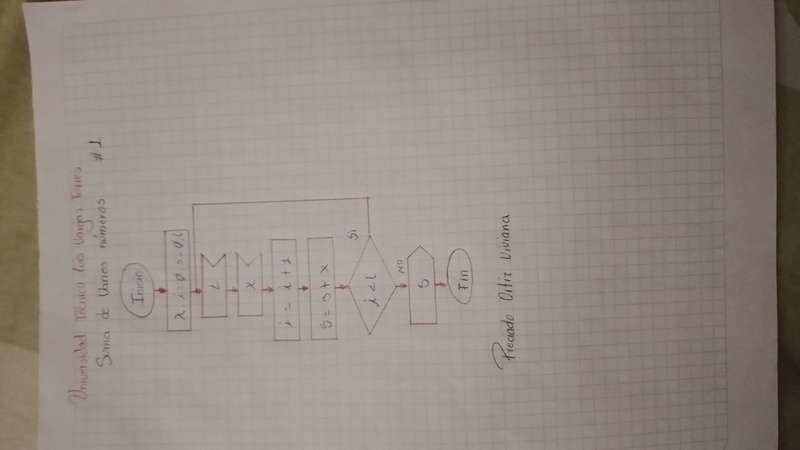 Universidad Técnica Luis Vargas Torres
Suma de Varios números #1
Inicio
x, i=0, s=0, L
L
x
i = i + 1
S = s + x
i < L
Si
NO
S
Fin
Preciado Ortiz Viviana